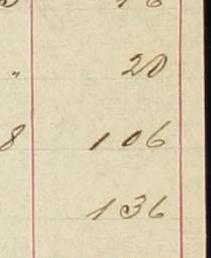 " 20
8 106
136